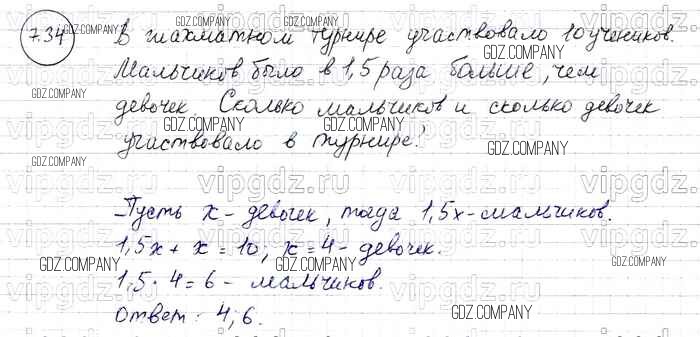 7.34 В шахматном турнире участвовало 10 учеников.
Мальчиков было в 1,5 раза больше, чем
девочек Сколько мальчиков и сколько девочек
участвовало в турнире?
Пусть x - девочек, тогда 1,5x - мальчиков.
1,5x + x = 10; x = 4 - девочек.
1,5 · 4 = 6 - мальчиков.
Ответ: 4; 6.
GDZ.COMPANY
vipgdz.ru